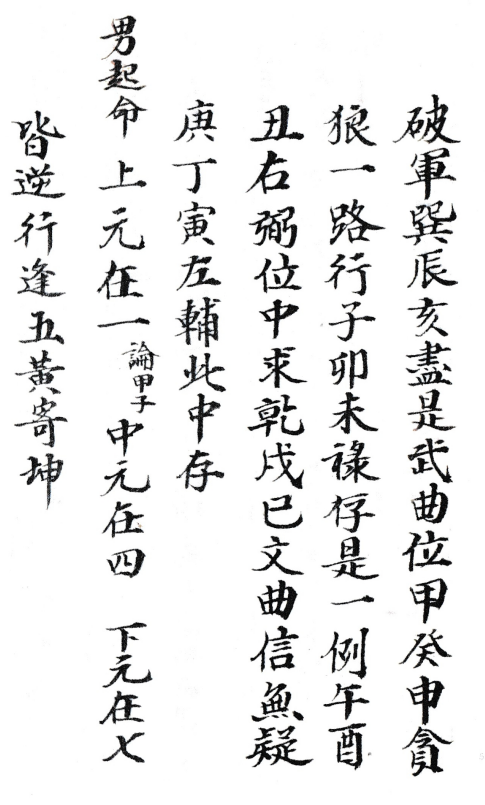 破軍巽辰亥盡是武曲位甲癸申貪
狼一路行子卯未祿存是一例午酉
丑右弼位中求乾戌巳文曲信無疑
庚丁寅左輔此中存
男起命 上元在一 論甲子 中元在四 下元在七
皆逆行逢五黃寄坤